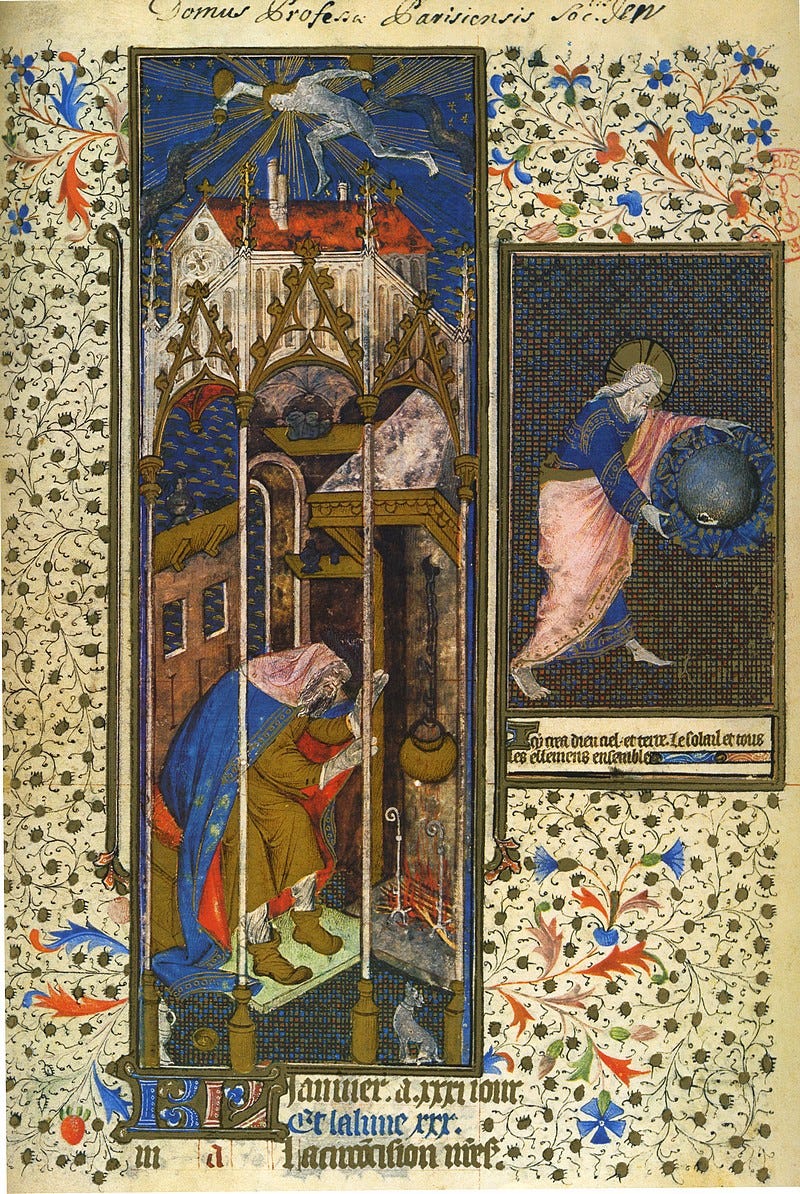 Domus Professæ Parisiensis Soc. Jesu
Icy crea dieu ciel et terre. Le solail et tous
les ellemens ensemble
KL Janvier. a. xxxi iour.
Et la lune xxx.
iii a La circoncision